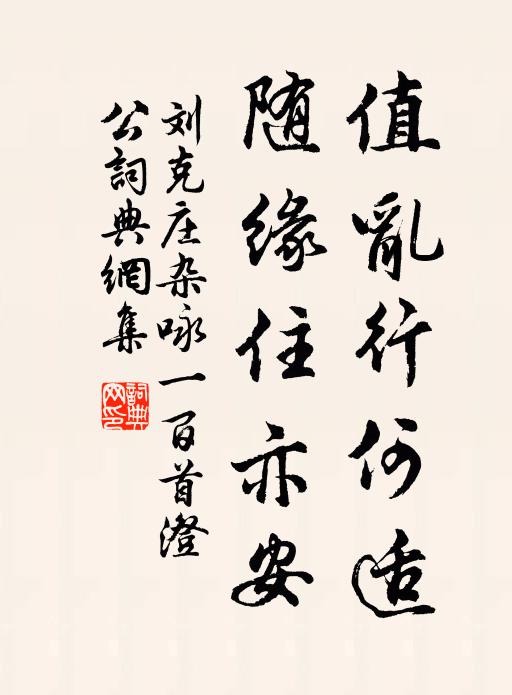 值亂行何适
随缘住亦安
刘克庄杂咏一百首澄
公詞典網集
詞典网印